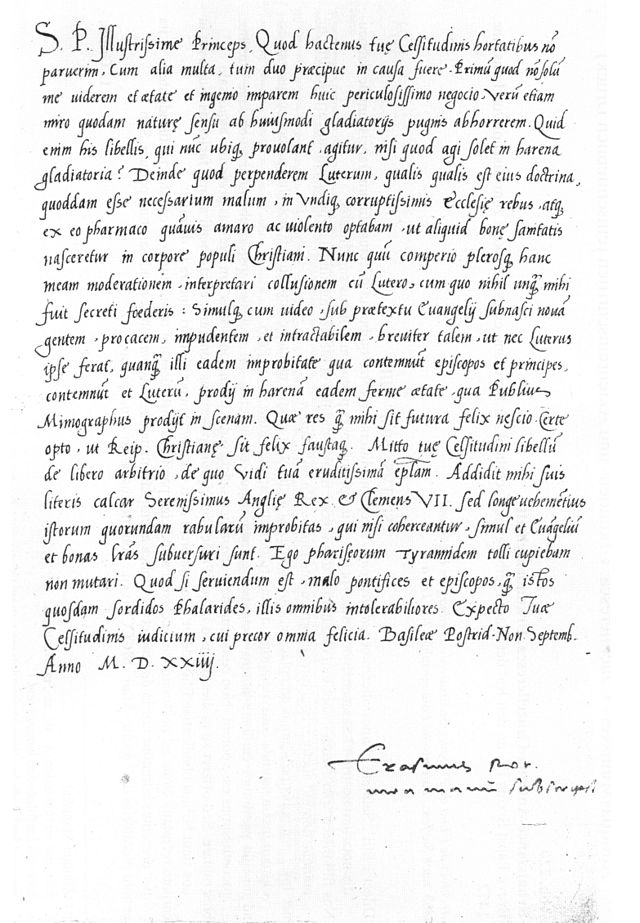 S. P. Illustrissime Princeps, Quod hactenus tuę Celsitudinis hortatibus nō
paruerim, Cum alia multa, tum duo præcipue in causa fuere. Primū quod nō solū
me viderem et ætate et ingenio imparem huic periculosissimo negocio. Verū etiam
miro quodam naturę sensu ab huiusmodi gladiatorijs pugnis abhorrerem. Quid
enim his libellis, qui nūc ubiq; provolant, agitur, nisi quod agi solet in harena
gladiatoria? Deinde quod perpenderem Luterum, qualis qualis est eius doctrina,
quoddam esse necessarium malum, in Undiq; corruptissimis Ecclesię rebus, atq;
ex eo pharmaco quāvis amaro ac violento optabam, ut aliquid bonę sanitatis
nasceretur in corpore populi Christiani. Nunc quū comperio plerosq; hanc
meam moderationem, interpretari collusionem cū Lutero, cum quo nihil unq̄ mihi
fuit secreti foederis: Simulq; cum video, sub prætextu Evangelij subnasci novā
gentem, procacem, impudentem, et intractabilem, breviter talem, ut nec Luterus
ipse ferat, quanq̄ illi eadem improbitate qua contemnūt episcopos et principes,
contemnūt et Luterū, prodij in harenā eadem ferme ætate, qua Publius
Mimographus prodijt in scenam. Quæ res q̄ mihi sit futura felix nescio. Certe
opto, ut Reip. Christianę sit felix faustaq;. Mitto tuę Celsitudini libellū
de libero arbitrio, de quo Vidi tuā eruditissimā eplām. Addidit mihi suis
literis calcar Serenissimus Anglię Rex & Clemens VII. Sed longe vehemētius
istorum quorundam rabularū improbitas, qui nisi coherceantur, simul et Evāgeliū
et bonas lr̄as subversuri sunt. Ego pharisęorum Tyrannidem tolli cupiebam
non mutari. Quod si serviendum est, malo pontifices et episcopos, q̄ istos
quosdam sordidos Phalarides, illis omnibus intolerabiliores. Expecto Tuæ
Celsitudinis iudicium, cui precor omnia felicia. Basileæ Postrid. Non. Septemb.
Anno M. D. XXiiij.
Erasmus Rot.
mea manu subscripsi